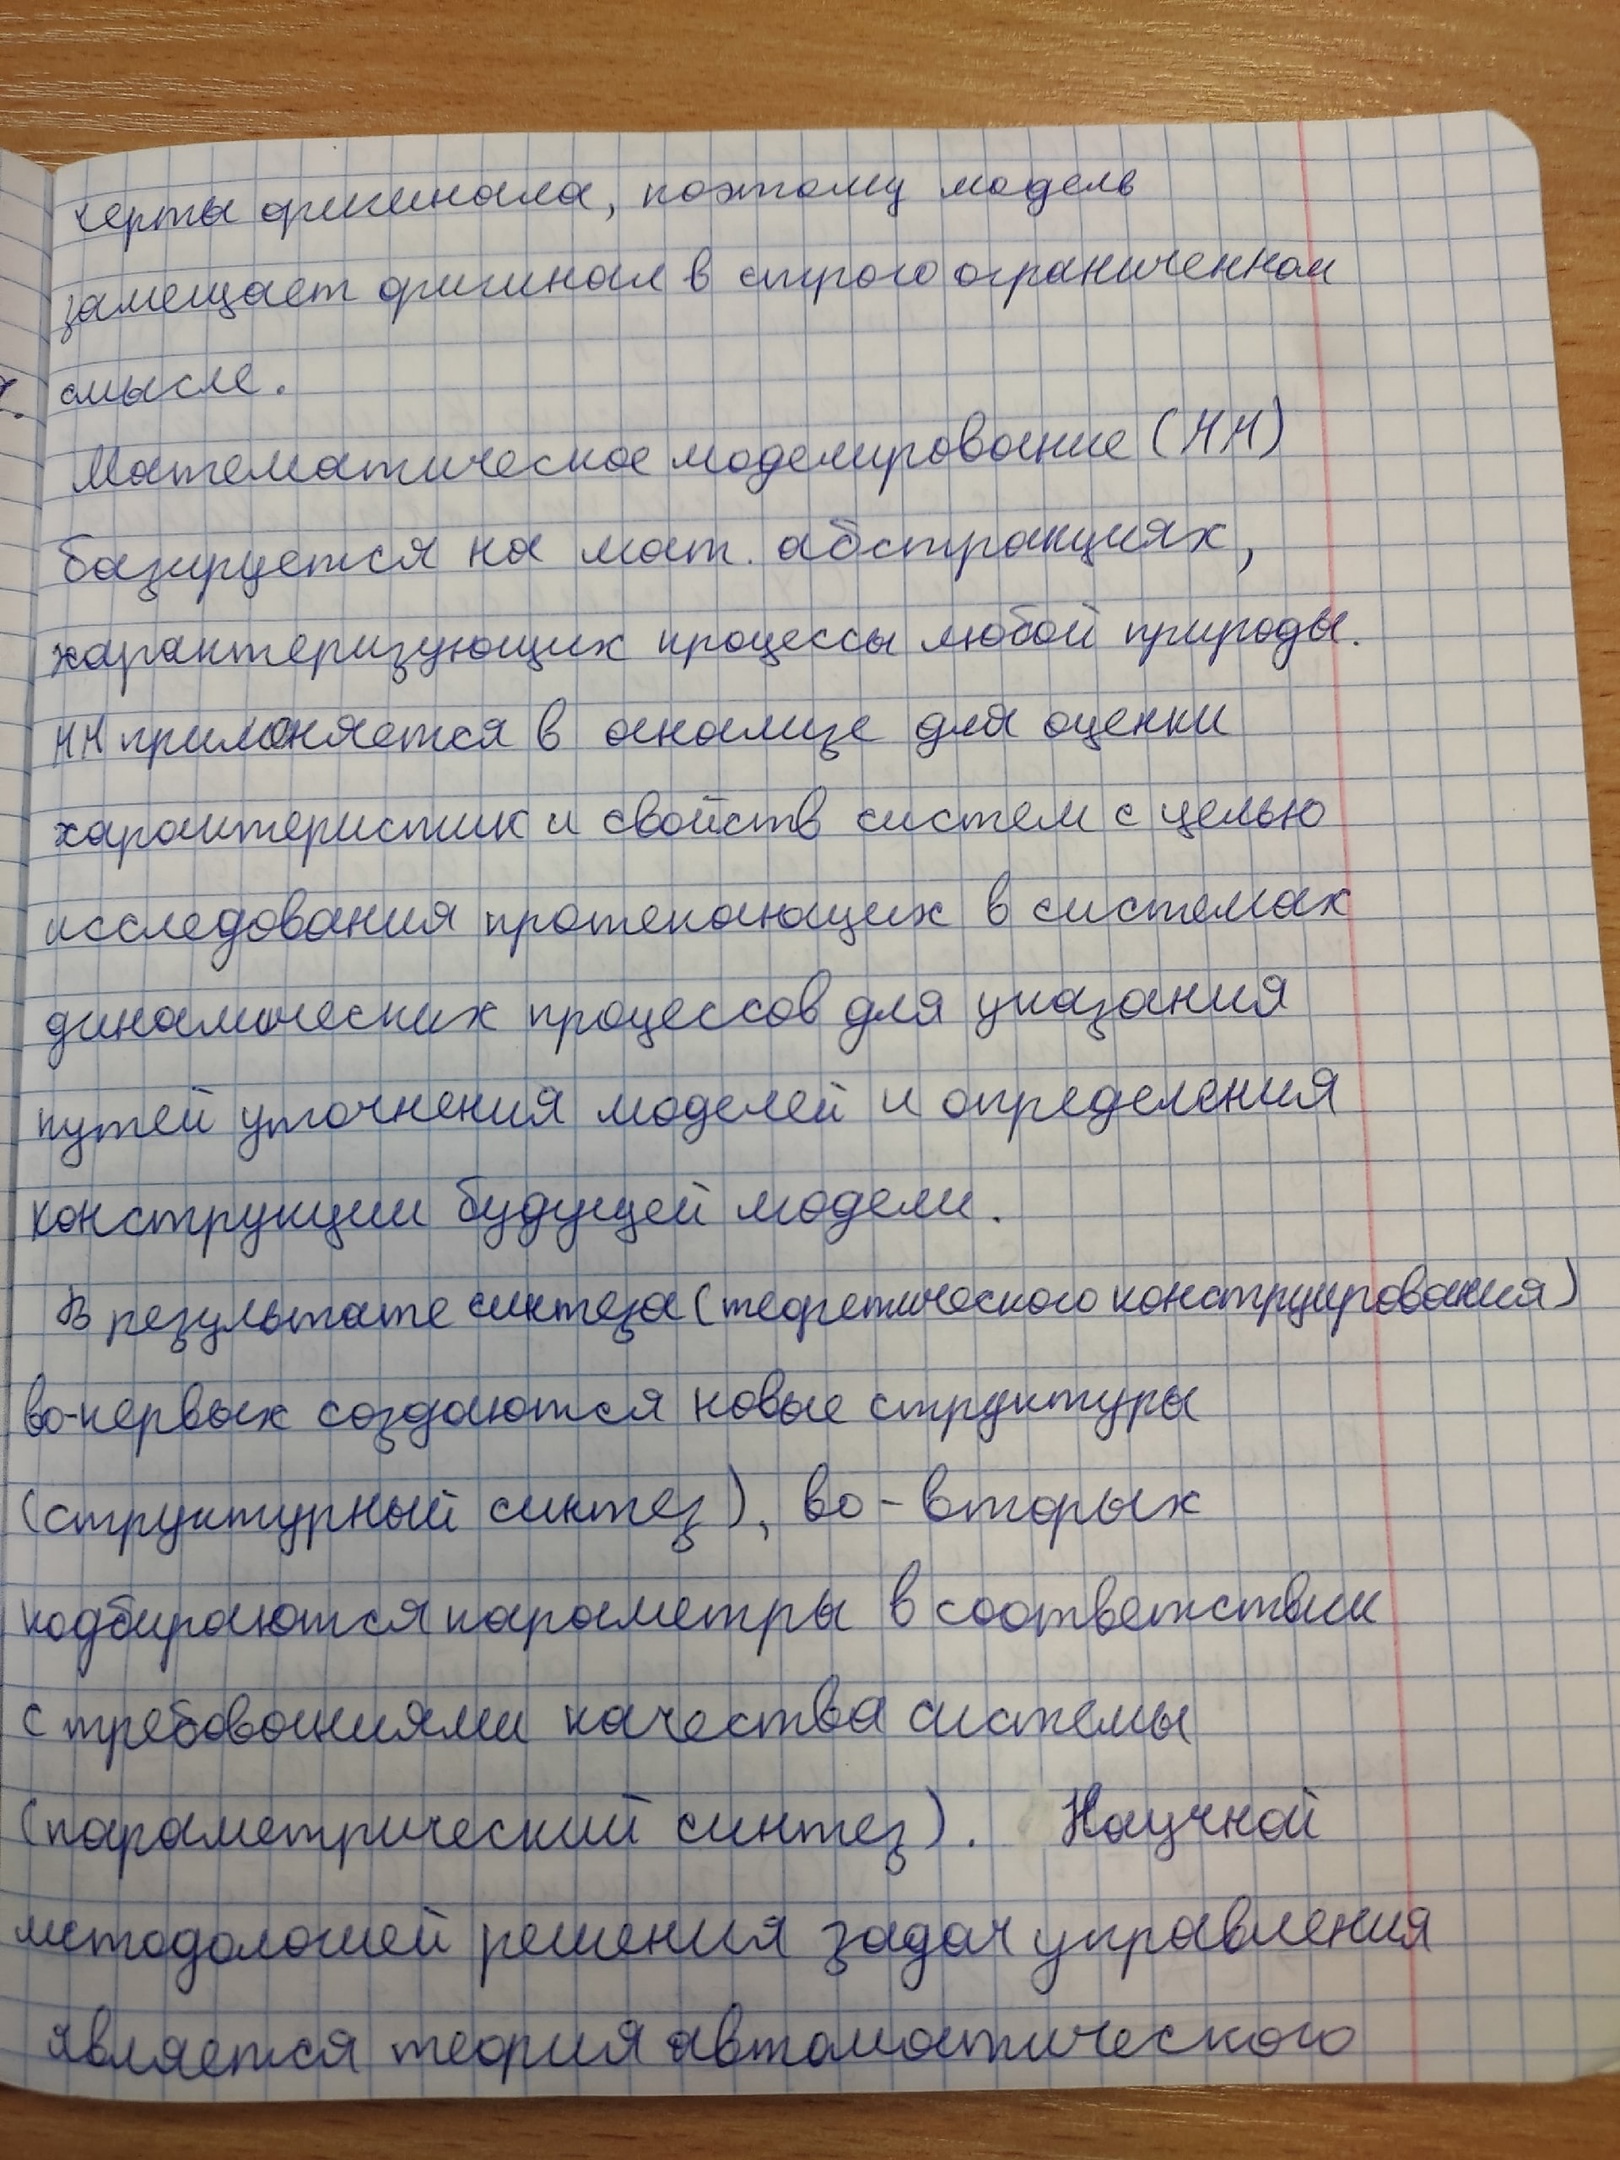 черты оригинала, поэтому модель
замещает оригинал в строго ограниченном
смысле.
Математическое моделирование (ММ)
базируется на мат. абстракциях,
характеризующих процессы любой природы.
ММ применяется в анализе для оценки
характеристик и свойств систем с целью
исследования протекающих в системах
динамических процессов для указания
путей уточнения моделей и определения
конструкции будущей модели.
В результате синтеза (теоретического конструирования)
во-первых создаются новые структуры
(структурный синтез), во-вторых
подбираются параметры в соответствии
с требованиями качества системы
(параметрический синтез). Научной
методологией решения задач управления
является теория автоматического